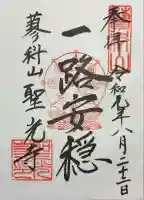 奉拝 令和元年八月二十二日
一路安穏
蓼科山 聖光寺